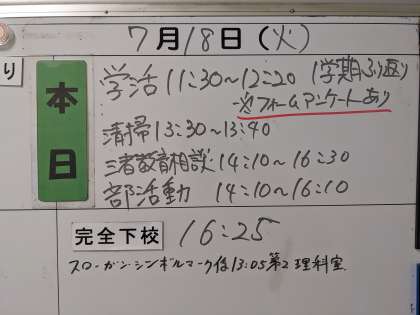 7月18日(火)
り
本日
学活 11:30~12:20 1学期ふり返り
※フォームアンケートあり
清掃 13:30~13:40
三者教育相談 14:10~16:30
部活動 14:10~16:10
完全下校 16:25
スローガン・シンボルマーク係 13:05 第2理科室